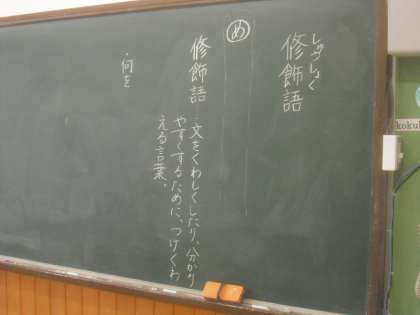 しゅうしょく
修飾語
め
修飾語…文をくわしくしたり、分かり
やすくするために、つけくわ
える言葉。
・何を
kokub